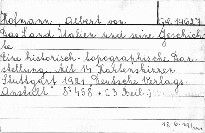 Hofmann, Albert von Gd. 14627.
Das Land Italien und seine Geschich-
te
Eine historisch-topographische Dar-
stellung. Mit 14 Kartenskizzen
Stuttgart 1921 Deutsche Verlags-
Anstalt 8° 458 +